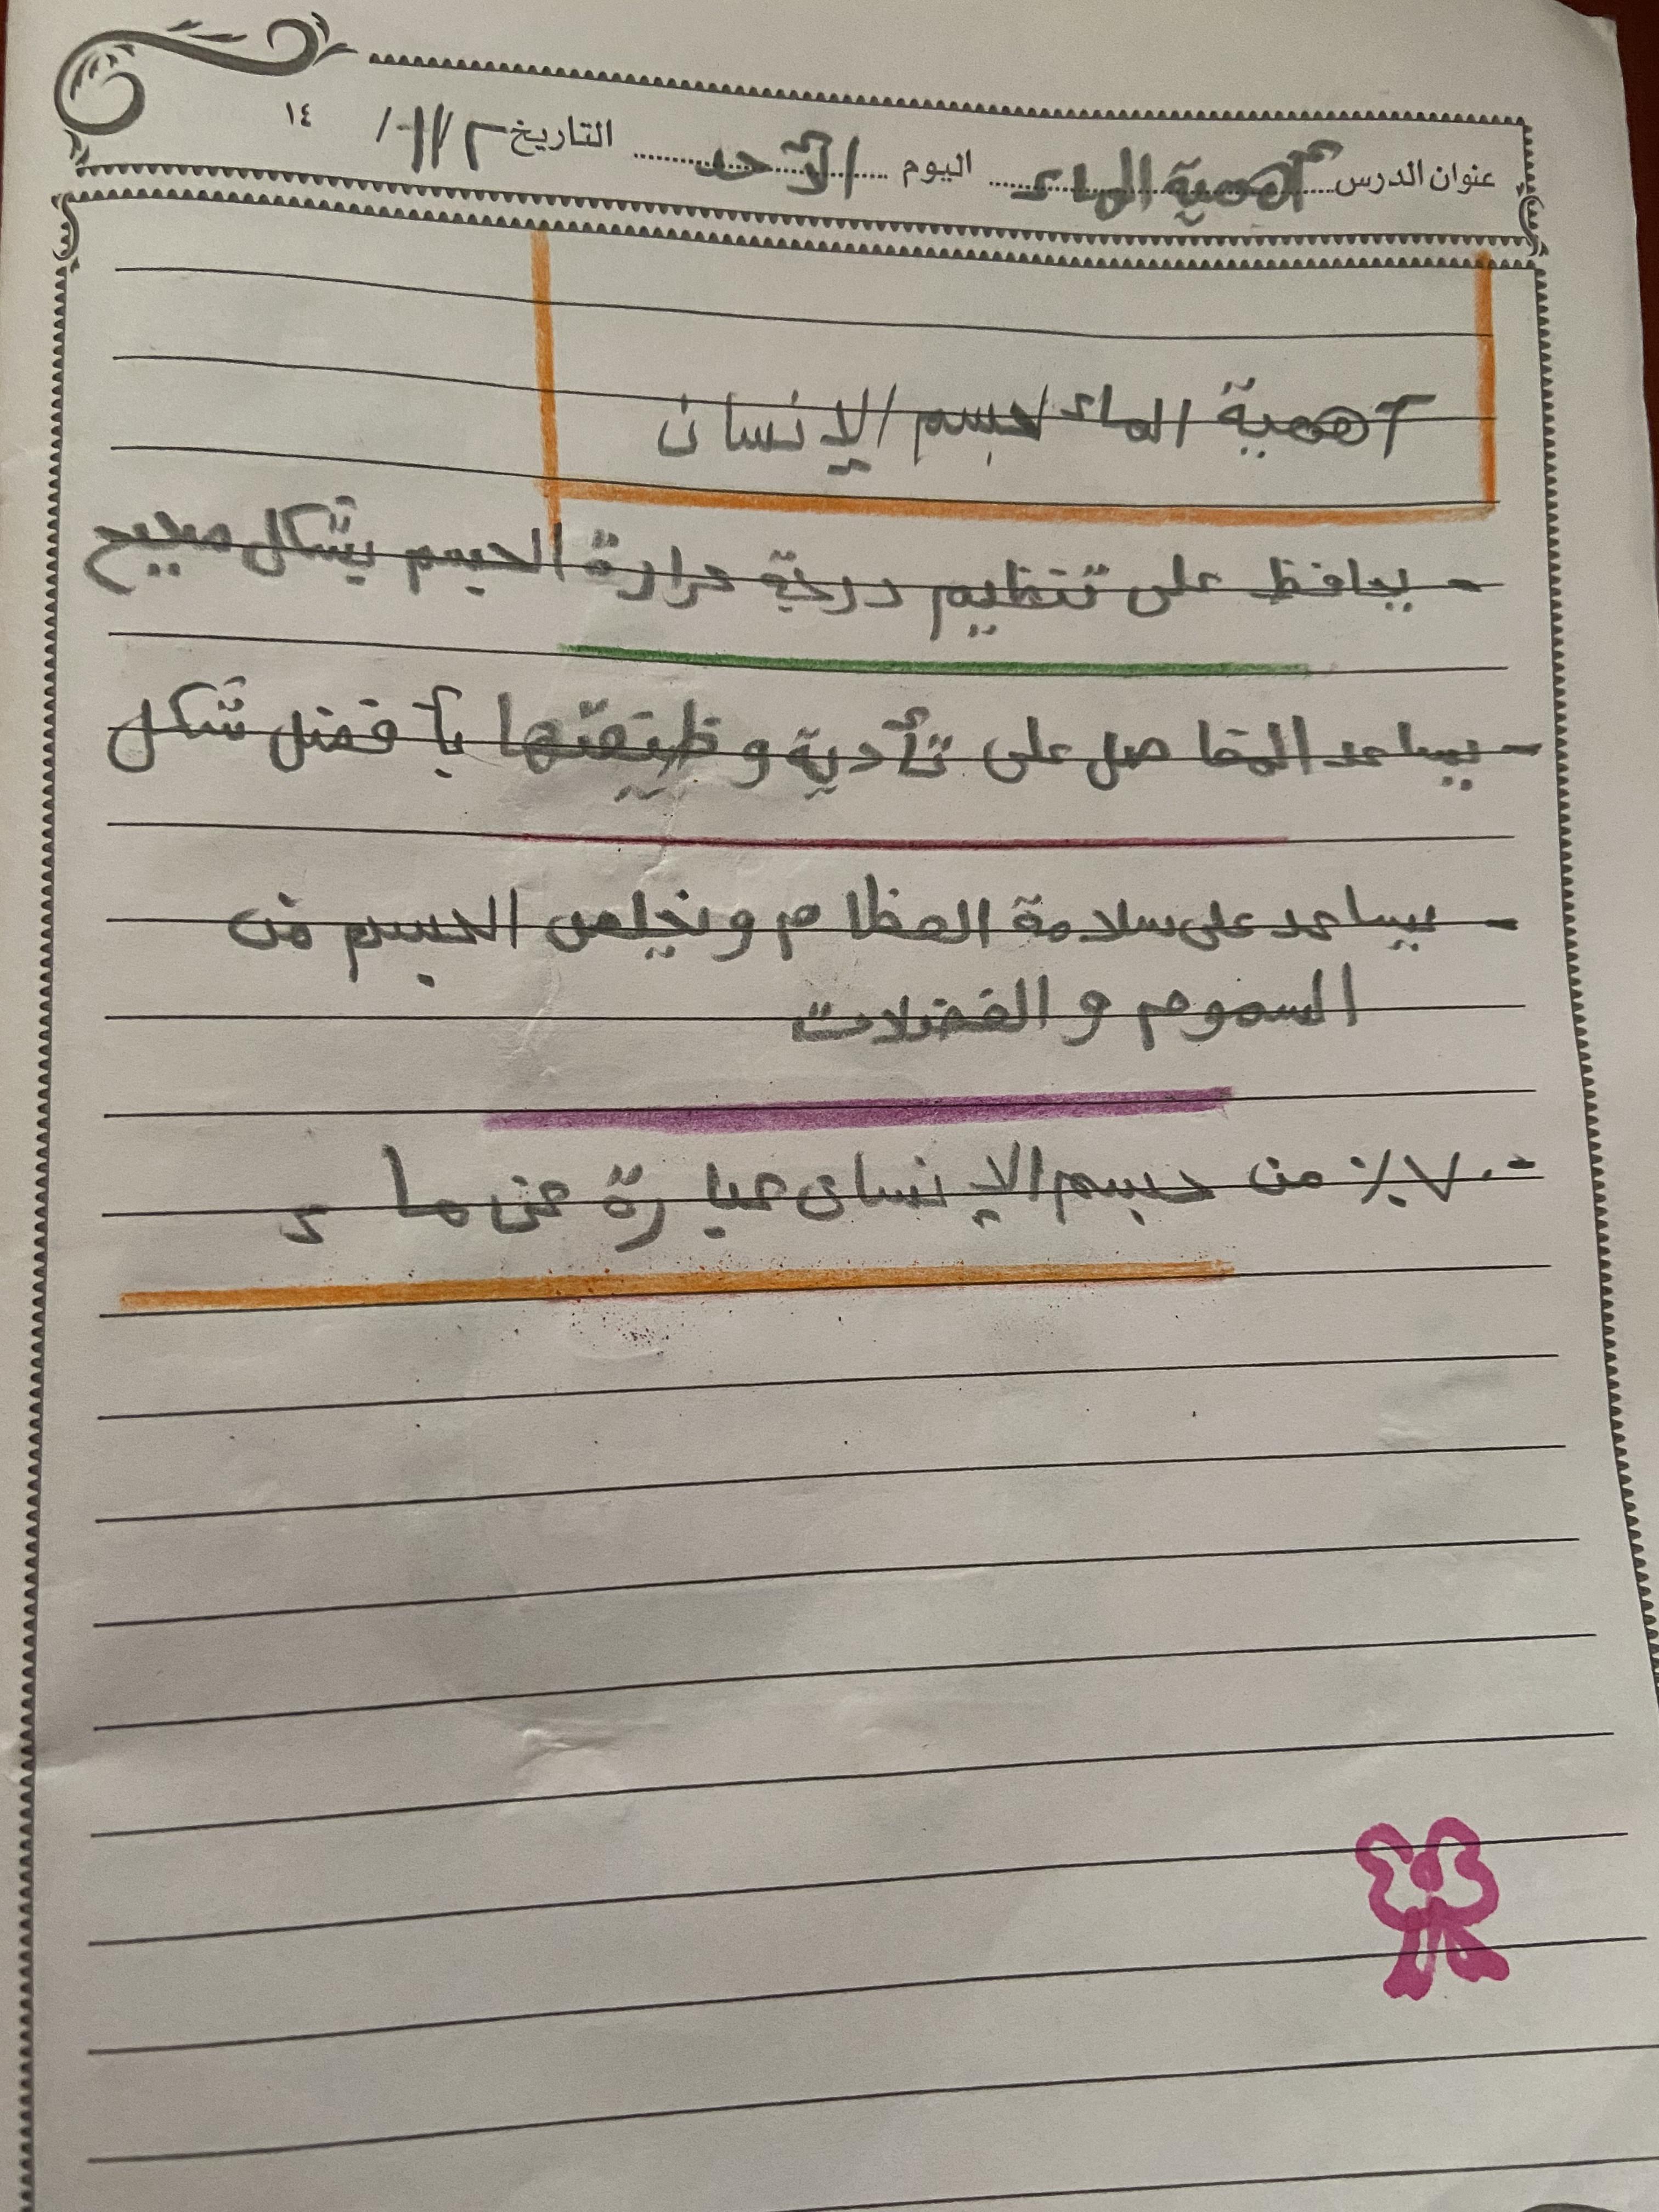 عنوان الدرس أهمية الماء اليوم الأحد التاريخ ١٤
أهمية الماء لجسم الإنسان
- يحافظ على تنظيم درجة حرارة الجسم بشكل صحيح
- يساعد المفاصل على تأدية وظيفتها بأفضل شكل
- يساعد على سلامة العظام ويخلص الجسم من
السموم والفضلات
- ٧٠٪ من جسم الإنسان عبارة عن ماء